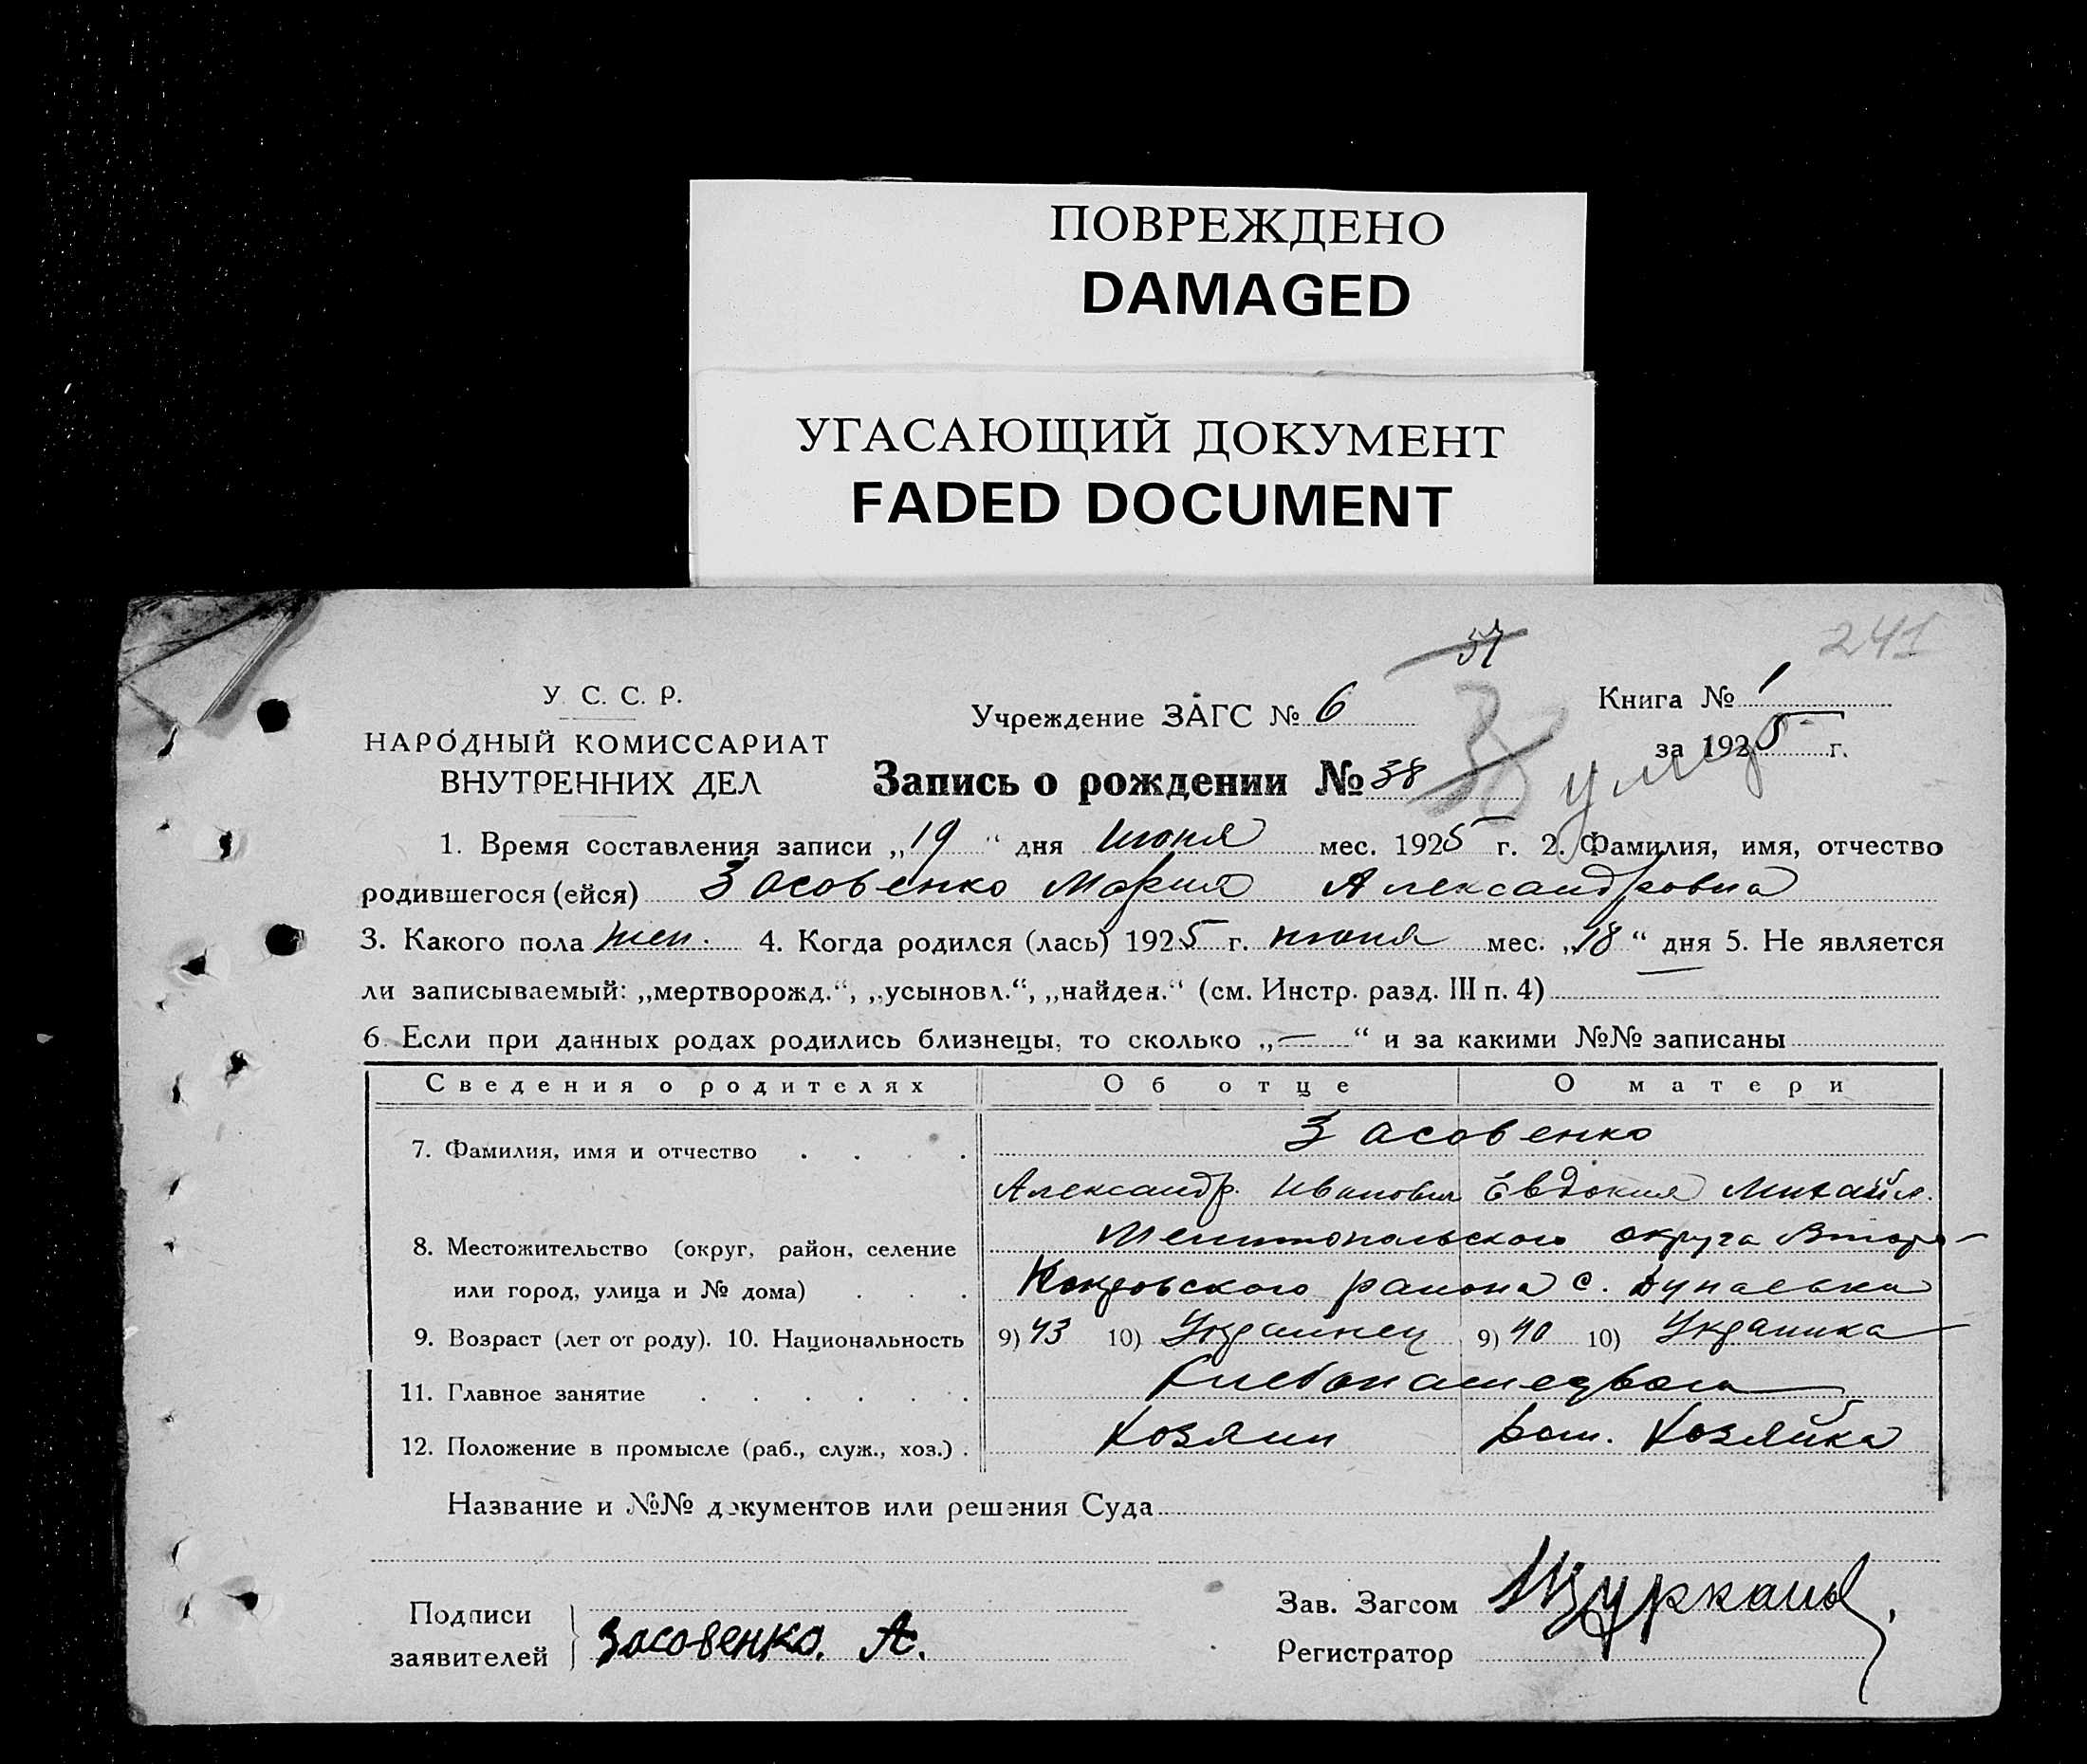 ПОВРЕЖДЕНО
DAMAGED
УГАСАЮЩИЙ ДОКУМЕНТ
FADED DOCUMENT
241
У. С. С. Р.
НАРОДНЫЙ КОМИССАРИАТ
ВНУТРЕННИХ ДЕЛ
Учреждение ЗАГС № 6
Книга № 1
за 1925 г.
Запись о рождении № 38
38
1. Время составления записи „19“ дня июня мес. 1925 г. 2. Фамилия, имя, отчество
родившегося (ейся) Засовенко Мария Александровна
3. Какого пола жен. 4. Когда родился (лась) 1925 г. июня мес. „18“ дня 5. Не является
ли записываемый: „мертворожд.“, „усыновл.“, „найден.“ (см. Инстр. разд. III п. 4)
6. Если при данных родах родились близнецы, то сколько „—“ и за какими №№ записаны
Сведения о родителях Об отце О матери
7. Фамилия, имя и отчество . . . . Засовенко
Александр Иванович Евдокия Михайл.
8. Местожительство (округ, район, селение Мелитопольского округа Второ-
или город, улица и № дома) . . . Кокровского района с. Дунаевка
9. Возраст (лет от роду). 10. Национальность 9) 43 10) Украинец 9) 40 10) Украинка
11. Главное занятие . . . . . .
12. Положение в промысле (раб., служ., хоз.) . Хозяин Дом. Хозяйка
Название и №№ документов или решения Суда
Подписи
заявителей
Засовенко. А.
Зав. Загсом
Регистратор